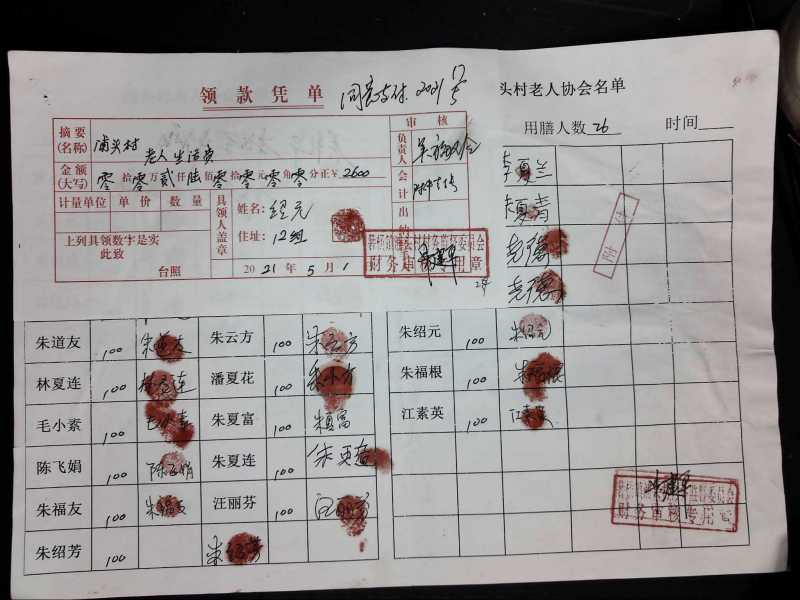 领款凭单
同意支付 2021
头村老人协会名单
用膳人数 26 时间
摘要(名称) 浦头村
老人生活费
审核
负责人
会计
出纳
金额(大写) 零拾零万贰仟陆佰零拾零元零角零分正￥2600
计量单位 单价 数量
具领人盖章
姓名:绍元
住址:12组
上列具领数字是实
此致
台照
2021年5月1
财务审核专用章
附件
朱道友 100 朱道友 朱云方 100 朱云方
林夏连 100 林夏连 潘夏花 100 朱小方
毛小素 100 毛小素 朱夏富 100 朱夏富
陈飞娟 100 陈飞娟 朱夏连 100 朱夏连
朱福友 100 朱福友 汪丽芬 100 汪丽芬
朱绍芳 100 朱绍芳
朱绍元 100 朱绍元
朱福根 100 朱福根
江素英 100 江素英
财务审核专用章